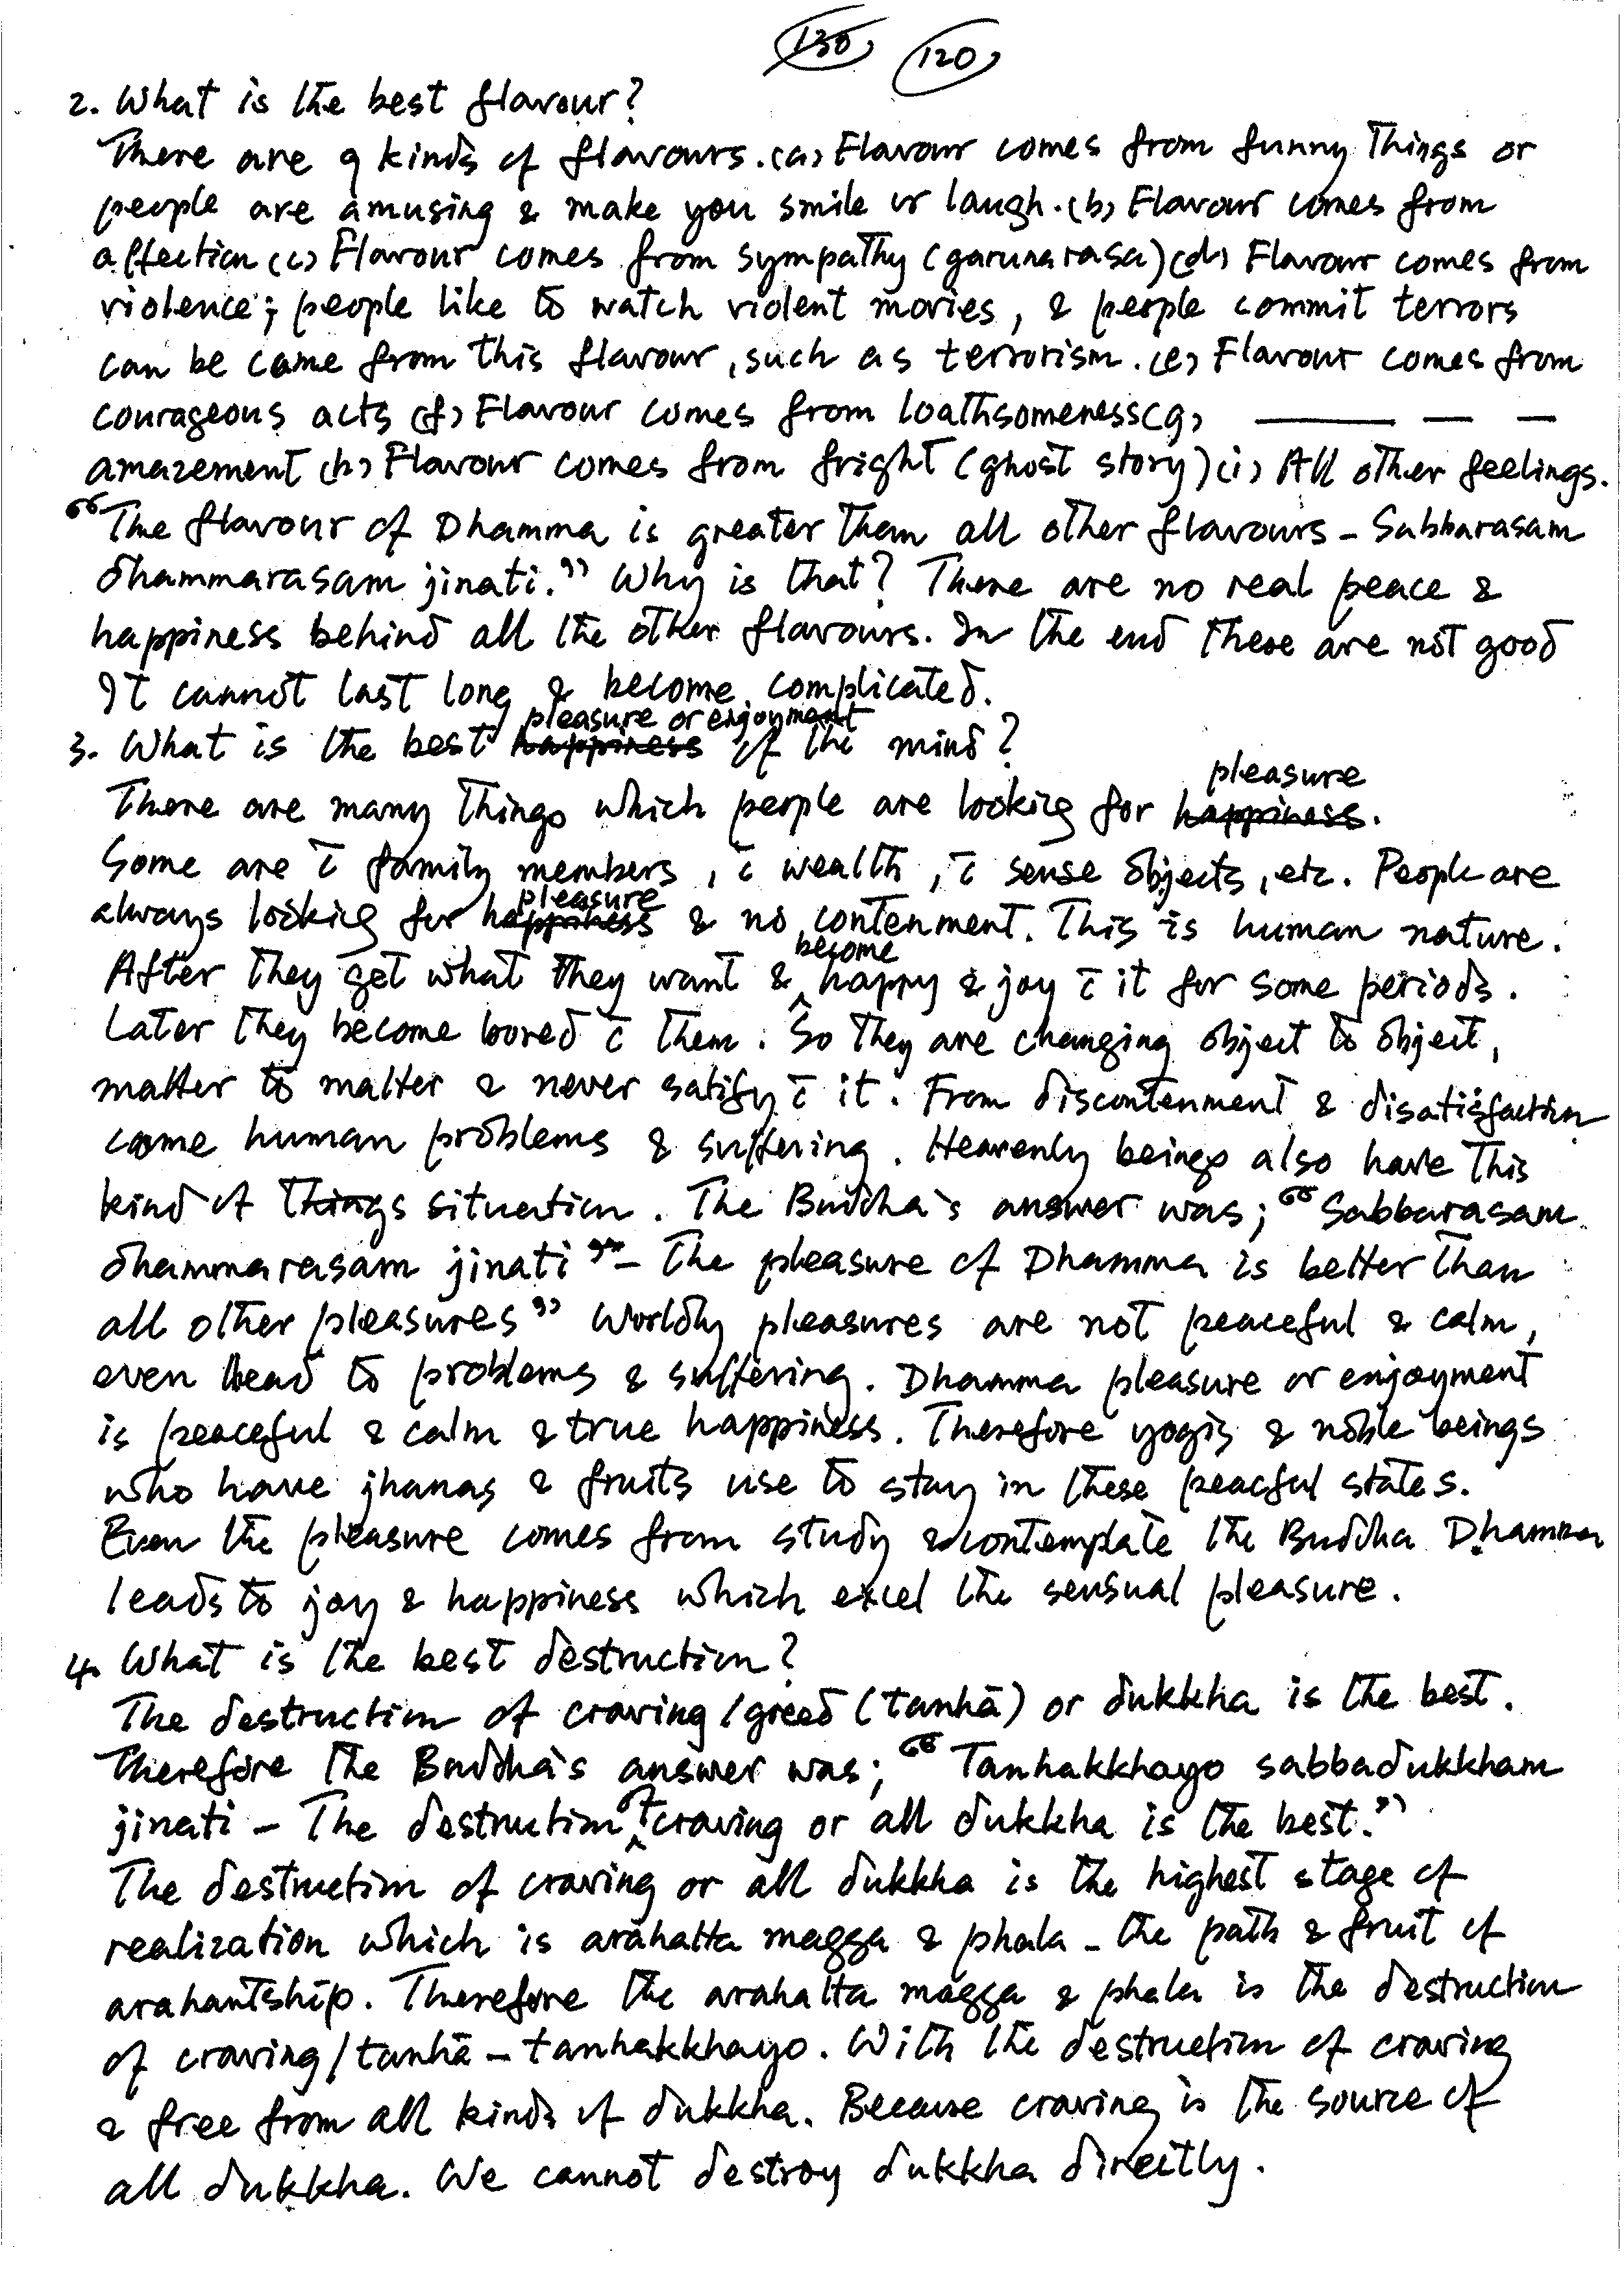 130 120
2. What is the best flavour?
There are 9 kinds of flavours. (a) Flavour comes from funny things or
people are amusing & make you smile or laugh. (b) Flavour comes from
affection (c) Flavour comes from sympathy (garunarasa) (d) Flavour comes from
violence; people like to watch violent movies, & people commit terrors
can be came from this flavour, such as terrorism. (e) Flavour comes from
courageous acts (f) Flavour comes from loathsomeness (g) ——— — —
amazement (h) Flavour comes from fright (ghost story) (i) All other feelings.
"The flavour of Dhamma is greater than all other flavours – Sabbarasam
dhammarasam jinati." Why is that? There are no real peace &
happiness behind all the other flavours. In the end these are not good
It cannot last long & become complicated.
pleasure or enjoyment
3. What is the best happiness of the mind?
pleasure
There are many things which people are looking for happiness.
Some are c̄ family members, c̄ wealth, c̄ sense objects, etc. People are
pleasure
always looking for happiness & no contenment. This is human nature.
become
After they get what they want & ^ happy & joy c̄ it for some periods.
Later they become bored c̄ them. So they are changing object to object,
matter to matter & never satify c̄ it. From discontenment & disatisfaction
come human problems & suffering. Heavenly beings also have this
kind of things situation. The Buddha's answer was; "Sabbarasam
dhammarasam jinati" – The pleasure of Dhamma is better than
all other pleasures" Worldly pleasures are not peaceful & calm,
even lead to problems & suffering. Dhamma pleasure or enjoyment
is peaceful & calm & true happiness. Therefore yogis & noble beings
who have jhanas & fruits use to stay in these peacful states.
Even the pleasure comes from study & contemplate the Buddha Dhamma
leads to joy & happiness which excel the sensual pleasure.
4. What is the best destruction?
The destruction of craving / greed (tanhā) or dukkha is the best.
Therefore the Buddha's answer was; "Tanhakkhayo sabbadukkham
jinati – The destruction ^of craving or all dukkha is the best."
The destruction of craving or all dukkha is the highest stage of
realization which is arahatta magga & phala – the path & fruit of
arahantship. Therefore the arahatta magga & phala is the destruction
of craving / tanhā – tanhakkhayo. With the destruction of craving
& free from all kinds of dukkha. Because craving is the source of
all dukkha. We cannot destroy dukkha directly.